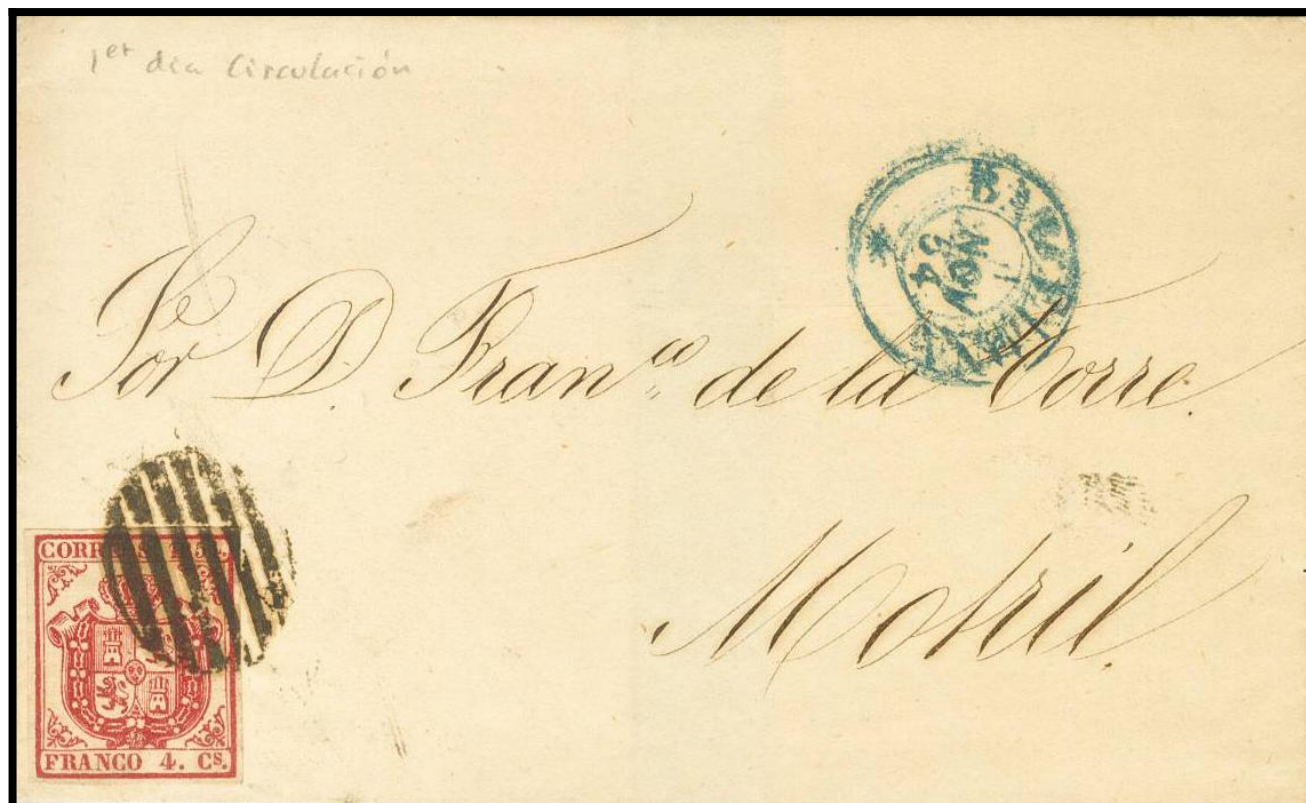 1er dia Circulación
NOV
Sor D. Franco de la Torre.
Motril.
CORREOS 1854.
FRANCO 4. Cs.